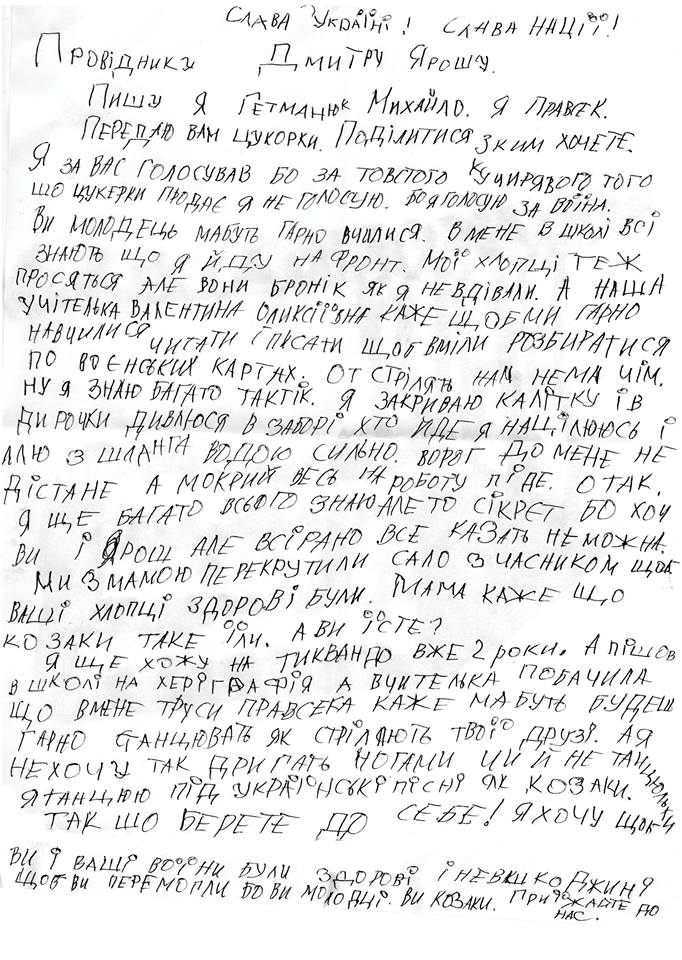 Слава Україні! Слава нації!
Провіднику Дмитру Ярошу.
Пишу я Гетманцюк Михайло. Я Правсек.
Передаю вам цукорки. Поділитися зким хочете.
Я за вас голосував бо за товстого кучирявого того
шо цукерки продає я не голосую. Бо я голосую за воїна.
Ви молодець мабуть гарно вчилися. В мене в школі всі
знають що я йду на фронт. Мої хлопці теж
просяться але вони бронік як я не вдівали. А наша
учітелька Валентина Оликсіївна каже щоб ми гарно
навчилися читати і писати щоб вміли розбиратися
по воєнських картах. От стрілять нам нема чім.
Ну я знаю багато тактік. Я закриваю калітку і в
дирочки дивлюся в заборі хто йде я націлююсь і
ллю з шланга водою сильно. Ворог до мене не
дістане а мокрий весь на роботу піде. Отак.
Я ще багато всього знаю але то сікрєт бо хоч
ви і Ярош але всірано все казать не можна.
Ми з мамою перекрутили сало з часником щоб
ваші хлопці здорові були. Мама каже шо
козаки таке їли. А ви їсте?
Я ще хожу на тиквандо вже 2 роки. А пішов
в школі на херіграфія а вчителька побачила
що в мене труси Правсека каже мабуть будеш
гарно станцювать як стріляють твої друзі. А я
нехочу так дригать ногами ций й не танцюльки
я танцюю під українські пісні як козаки.
Так шо берете до себе! Я хочу щоби
ви і ваші воїни були здорові і невшкоджиня
щоб ви перемогли бо ви молодці. Ви козаки. Приїжжайте до
нас.